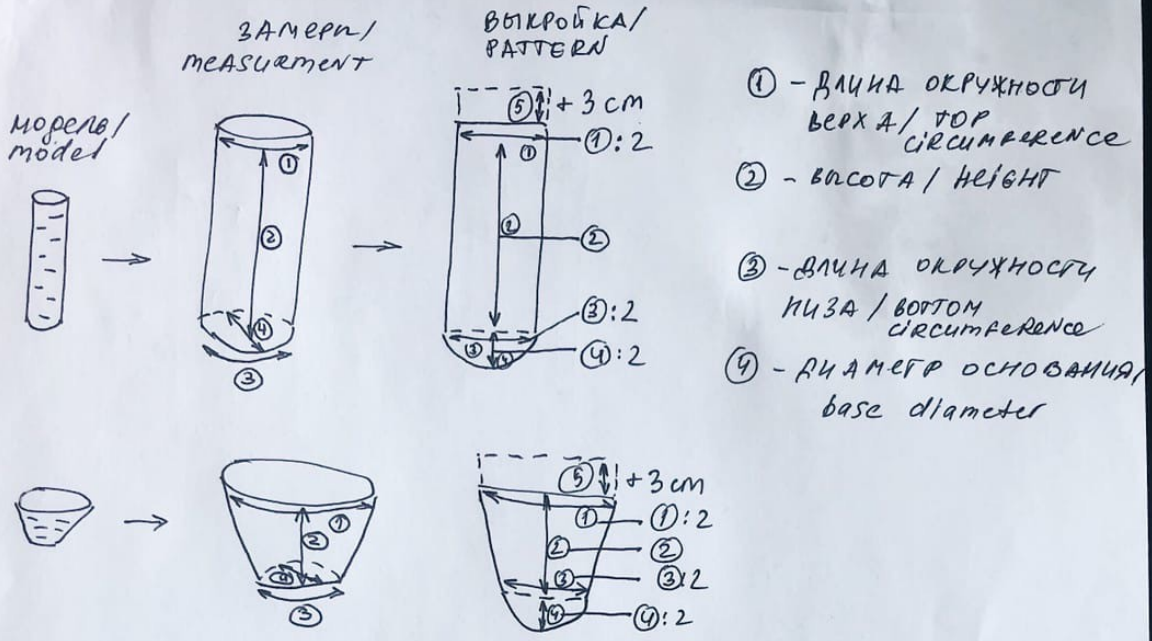 ЗАМЕРЫ/
MEASURMENT
ВЫКРОЙКА/
PATTERN
МОДЕЛЬ/
model
①
②
④
③
⑤ + 3 cm
①:2
①
②
②
③:2
③
④
④:2
① - ДЛИНА ОКРУЖНОСТИ
ВЕРХА / TOP
CIRCUMFERENCE
② - ВЫСОТА / HEIGHT
③ - ДЛИНА ОКРУЖНОСТИ
НИЗА / BOTTOM
CIRCUMFERENCE
④ - ДИАМЕТР ОСНОВАНИЯ/
base diameter
①
②
④
③
⑤ + 3 cm
① ①:2
② ②
③ ③:2
④ ④:2